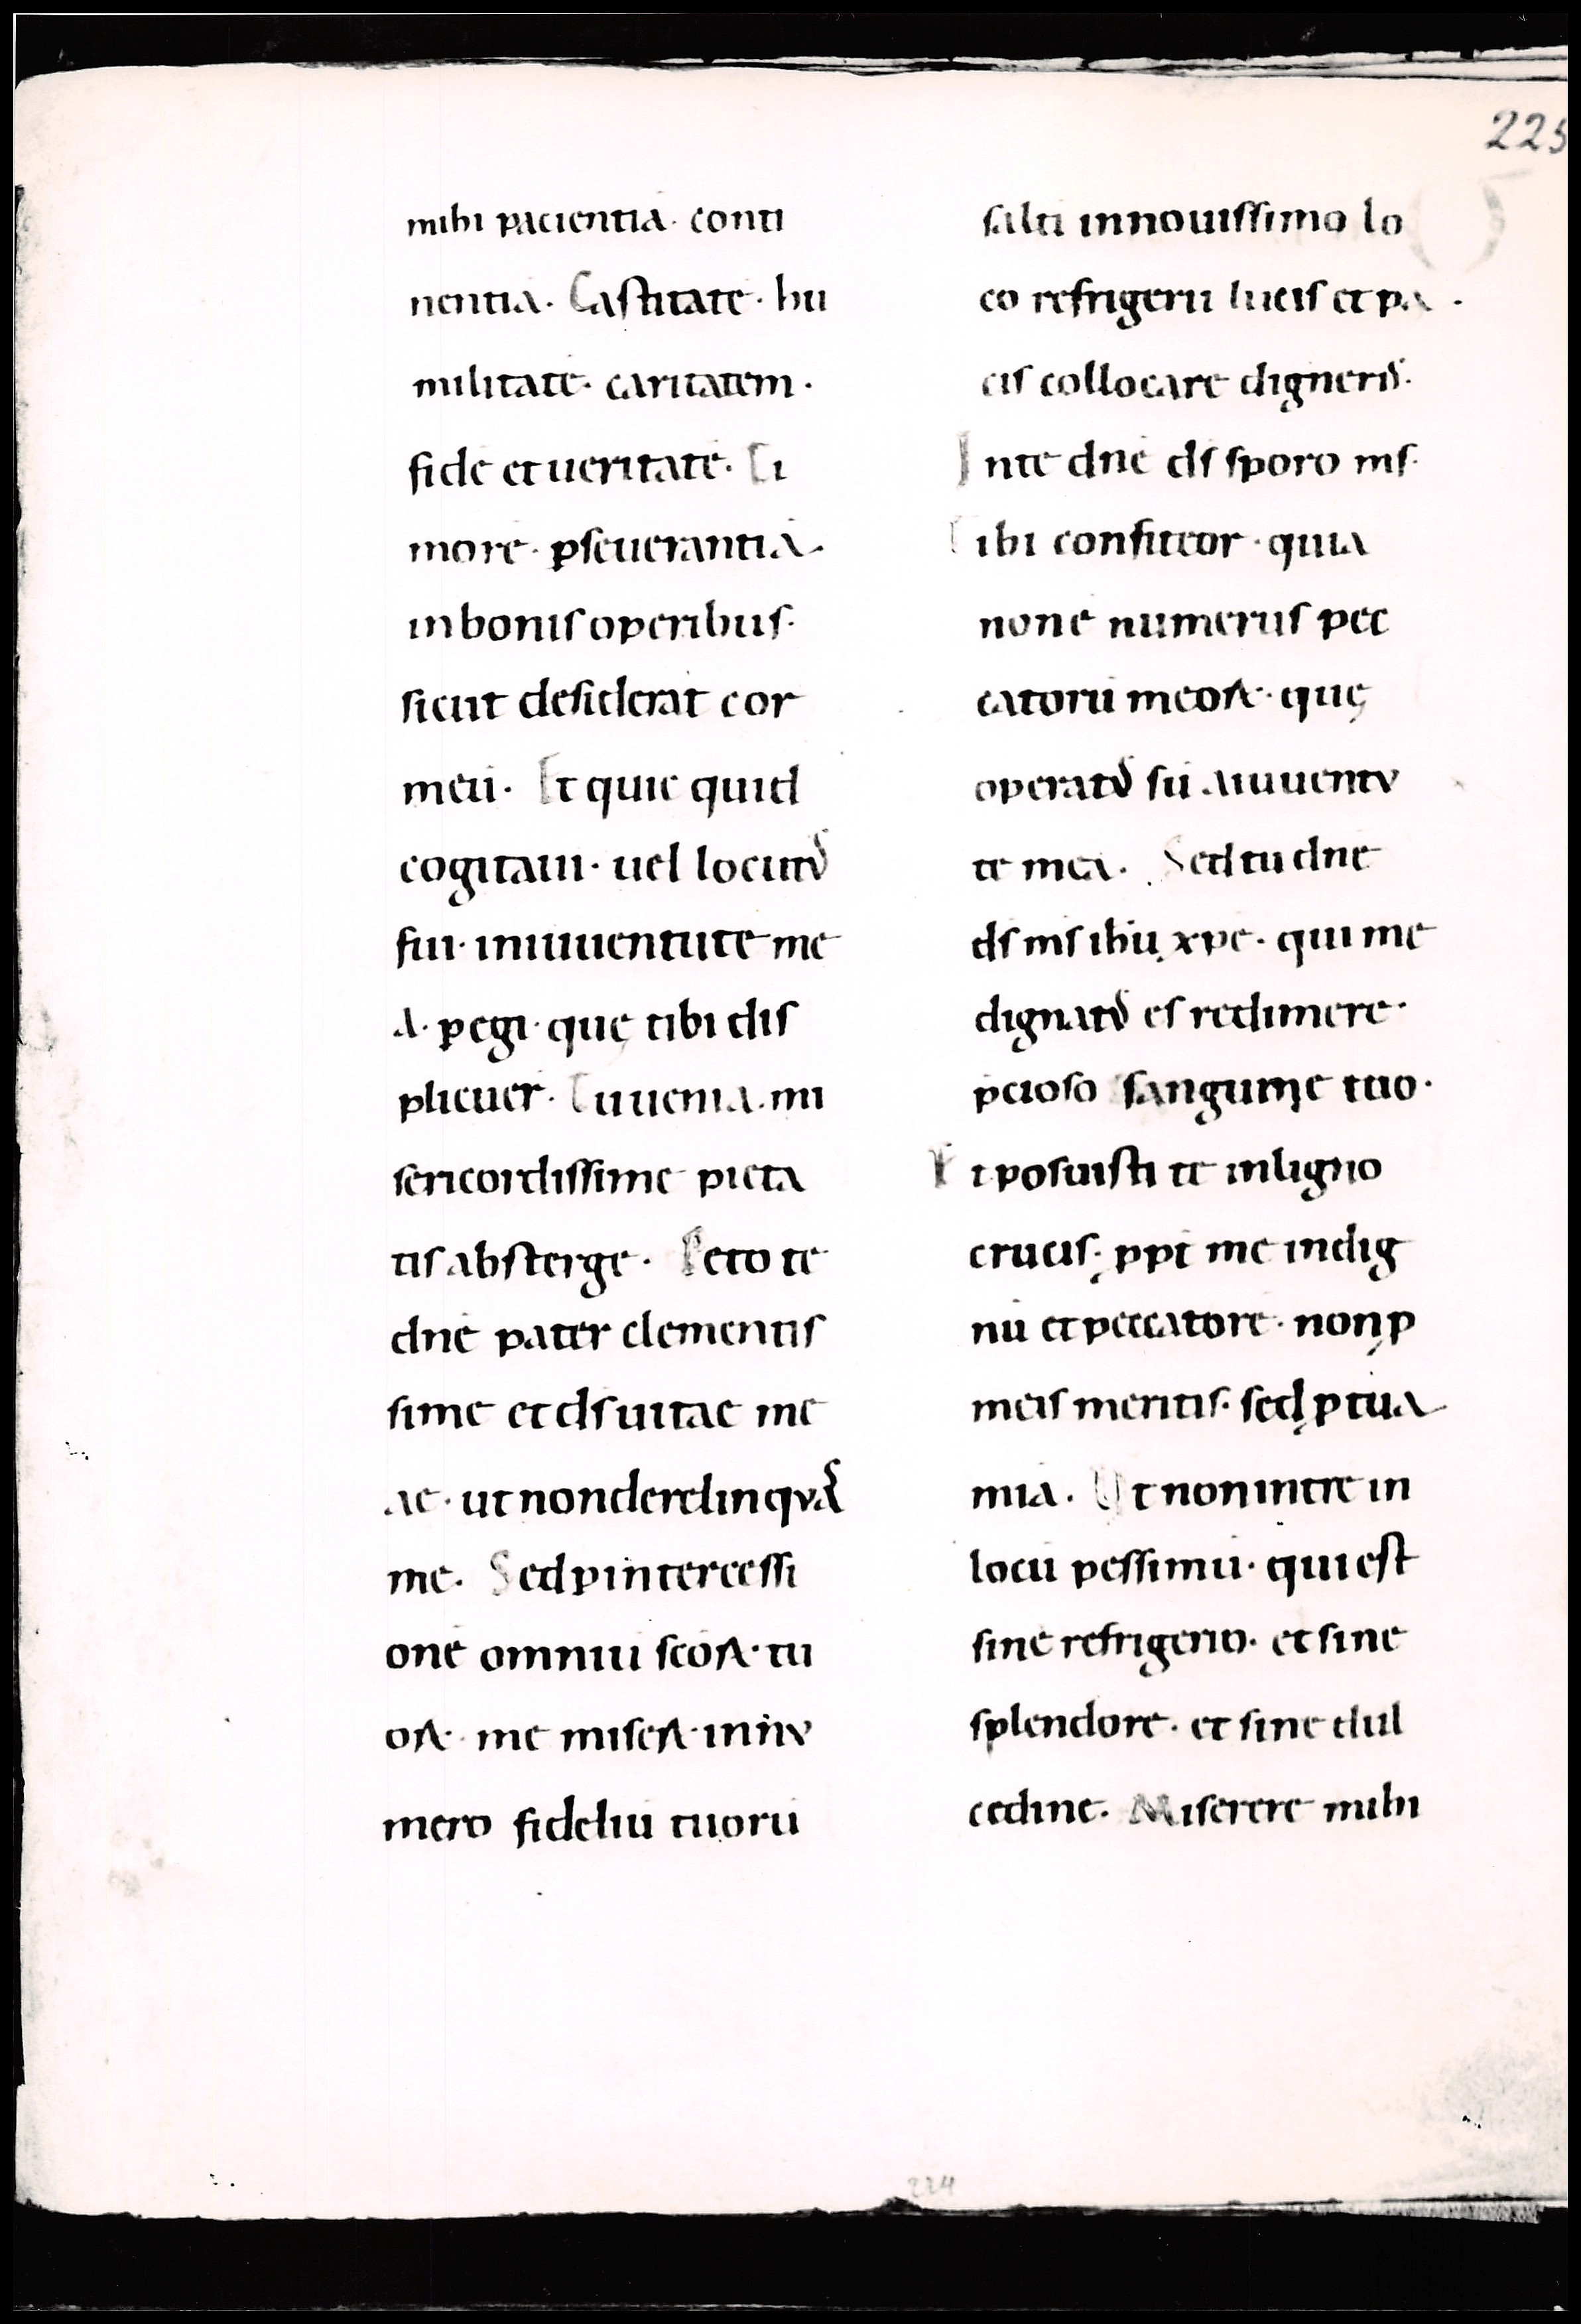 225
mihi pacientia· conti
nentia· Castitate· hu
militate· caritatem·
fidē et ueritatē· Ti
morē· pseuerantiā·
inbonis operibus·
sicut desiderat cor
meū· Et quic quid
cogitaui· uel locutꝰ
fui· iniuuentute me
a· pegi· quę tibi dis
plicuer̄· Tu uenia mi
sericordissime pieta
tis absterge· Peto te
dn̄e pater clementis
sime et ds̄ uitae me
ae· ut nonderelinquas
me· Sed p intercessi
onē omniū scōꝝ· tu
oꝝ· me miserꝝ· innu
mero fideliū tuorū
salti innouissimo lo
co refrigerii lucis et pa
cis collocare digneris·
In te dn̄e ds̄ sporo ms̄·
Tibi confiteor· quia
non ē numerus pec
catorū meoꝝ· quę
operatꝰ sū aiuuentu
te mea· Sed tu dn̄e
ds̄ ms̄ ihū xp̄e· qui me
dignatꝰ es redimere·
pcioso sanguine tuo·
Et posuisti te inligno
crucis· ppt̄ me indig
nū et peccatorē· non p
meis meritis· sed p tuā
mia· Ut non intrē in
locū pessimū· qui est
sine refrigerio· et sine
splendore· et sine dul
cedine· Miserere mihi
224